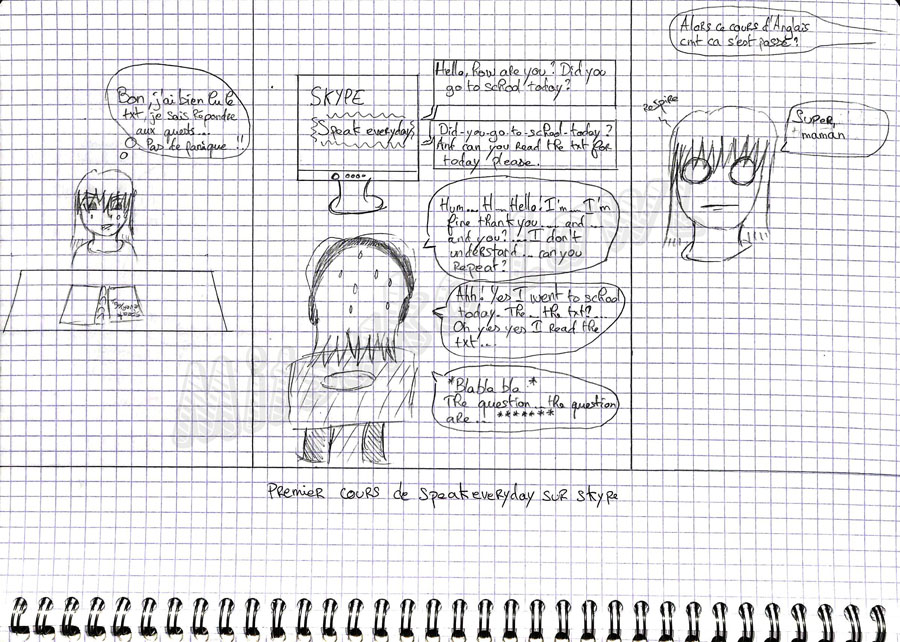 Bon, j'ai bien lu le
txt, je sais répondre
aux quests...
Pas de panique !!
SKYPE
Speak everyday
Hello, how are you? Did you
go to school today?
Did-you-go-to-school-today?
And can you read the txt for
today please..
Hum.... H... Hello! I'm.... I'm
fine thank you..... and...
and you?.... I don't
understand... can you
Repeat?
Ahh! Yes I went to school
today. The... the txt?....
Oh yes yes I Read the
txt...
*Blabla bla.*
The question...the question
are... *******
Alors ce cours d'Anglais
cmt ca s'est passé?
respire
SUPER
maman
PREMIER COURS de speakeveryday SUR skype